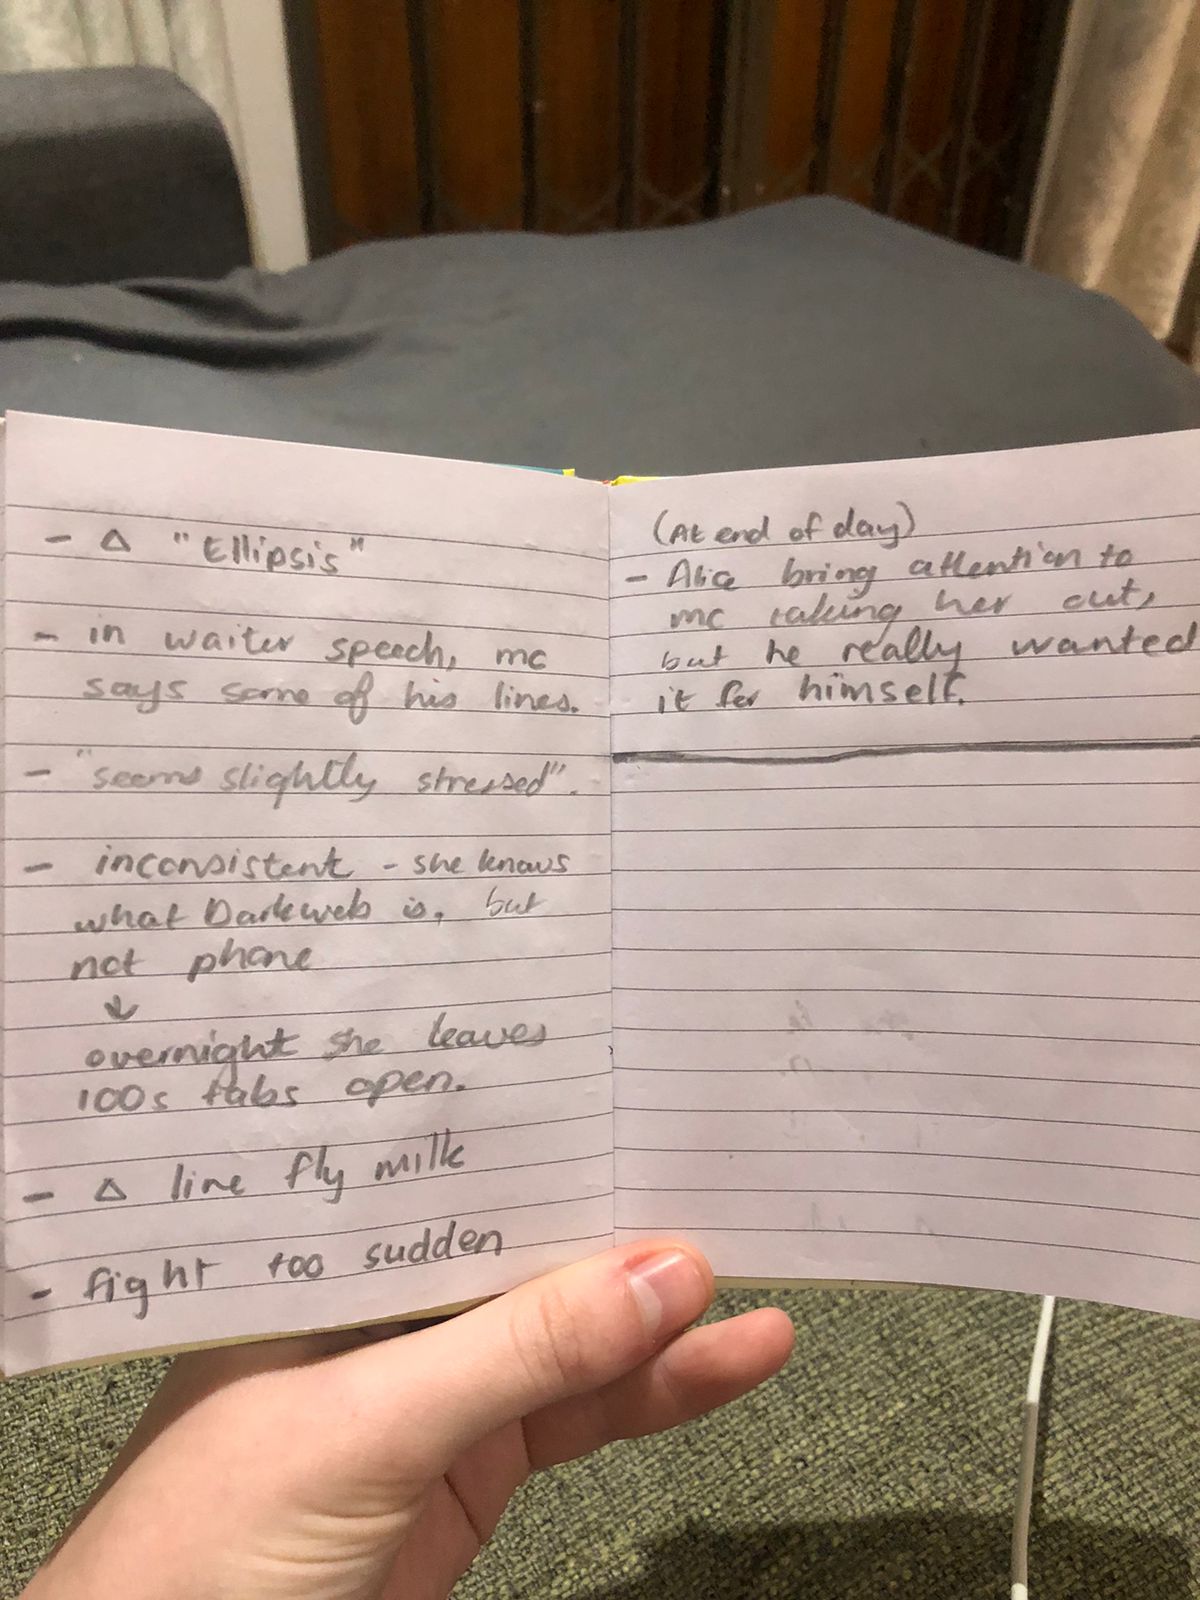 - Δ "Ellipsis"
- in waiter speech, mc
says some of his lines.
- "seems slightly stressed".
- inconsistent - she knows
what Darkweb is, but
not phone
↓
overnight she leaves
100s tabs open.
- Δ line fly milk
- fight too sudden
(At end of day)
- Alice bring attention to
mc taking her out,
but he really wanted
it for himself.